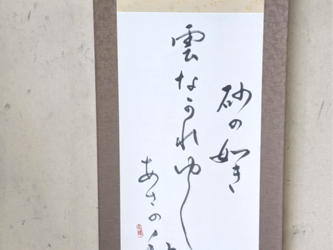 砂の如き
雲な可れゆく
あさの